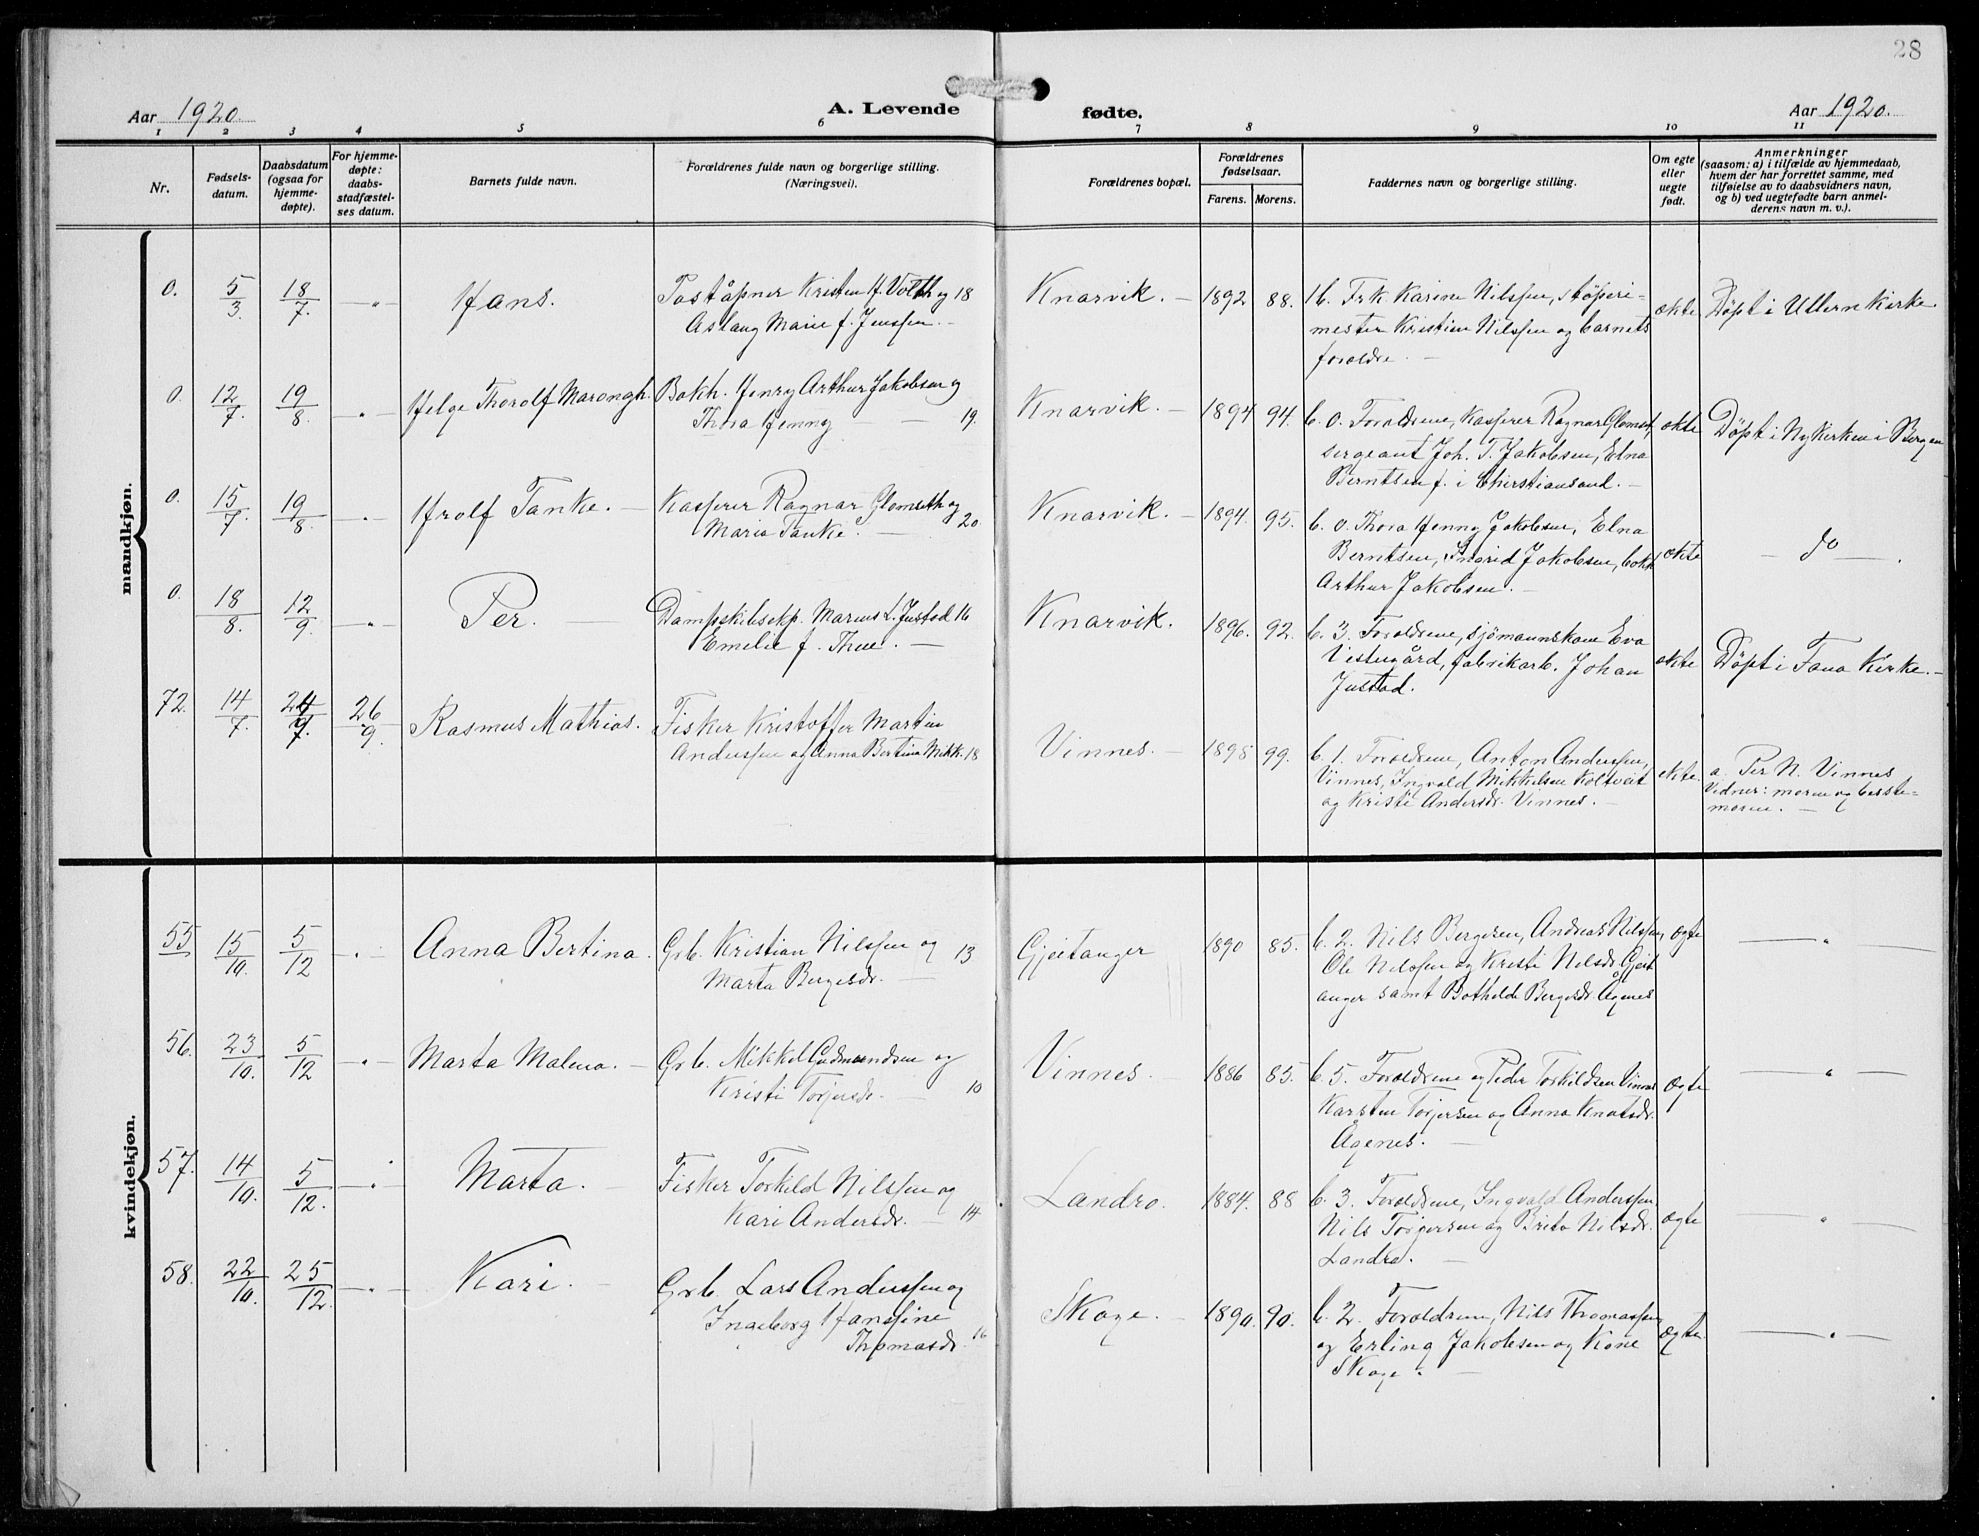 28
Aar 1920.
A. Levende
fødte.
Aar 1920.
1 2 3 4 5 6 7 8 9 10 11
Nr.
Fødsels-
datum.
Daabsdatum
(ogsaa for
hjemme-
døpte).
For hjemme-
døpte:
daabs-
stadfæstel-
ses datum.
Barnets fulde navn.
Forældrenes fulde navn og borgerlige stilling.
(Næringsvei).
Forældrenes bopæl.
Forældrenes
fødselsaar.
Farens. Morens.
Faddernes navn og borgerlige stilling.
Om egte
eller
uegte
født.
Anmerkninger
(saasom: a) i tilfælde av hjemmedaab,
hvem der har forrettet samme, med
tilføielse av to daabsvidners navn,
og b) ved uegtefødte barn anmel-
derens navn m. v.).
mandkjøn.
0. 5/3. 18/7. — " Hans.
Poståpner Kristen f. Volth og 18
Aslaug Marie f. Jenssen. —
Knarvik. — 1892 88.
1 b. Frk. Karine Nilssen, støperi-
mester Kristian Nilssen og barnets
foreldre. —
ekte Döpt i Ullern Kirke
0. 12/7. 19/8. — " Helge Thorolf Marongh.
Bokh. Henry Arthur Jakobsen og
Thora Henny — — 19.
Knarvik. — 1894 94.
b. 0. Foreldrene, Kasserer Ragnar Glomset,
sergeant Joh. T. Jakobsen, Elna
Berntsen f. i Christiansand. —
ekte Döpt i Nykirken i Bergen
0. 15/7. 19/8. — " Hrolf Tanke. —
Kasserer Ragnar Glomseth og
Maria Tanke. — 20.
Knarvik. — 1894. 95.
b. 0. Thora Henny Jakobsen, Elna
Berntsen, Ingrid Jakobsen, bokh
Arthur Jakobsen. —
ekte — do —
0. 18/8. 12/9. — " Per. —
Dampskibsekp. Marius L. Justad 16
Emelie f. Thue. —
Knarvik. 1896. 92.
b. 3. Foreldrene, sjømannskone Eva
Vestergård, fabrikarb. Johan
Justad.
ekte Döpt i Fana Kirke. —
72. 14/7. 24/7. 26/9. Rasmus Mathias.
Fisker Kristoffer Martin
Anderssen og Anna Bertina Mikk. 18
Vinnes. — 1895 99.
b. 1. Foreldrene, Anton Anderssen,
Vinnes, Ingvald Mikkelsen Koltveit
og Kristi Andersdr. Vinnes. —
ekte. a. Per N. Vinnes
Vidner: moren og beste-
moren. —
kvindekjøn.
55 15/10. 5/12 — " Anna Bertina.
Grb. Kristian Nilssen og 13
Marta Bergesdr. —
Gjeitanger 1890 85.
b. 2. Nils Bergesen, Andreas Nilssen,
Ole Nilssen og Kristi Nilsdr. Gjeit
anger samt Bothilde Bergesdr. Ågenes
Ægte — " —
56. 23/10. 5/12 — " Marta Malena. —
Grb. Mikkel Gudmundsen og
Kristi Torjersdr. — 10
Vinnes. 1886 85.
b. 5. Foreldrene og Peder Torkildsen Vinnes
Karsten Torjersen og Anna Knutsdr.
Ågenes. —
Ægte — " —
57. 14/10. 5/12. — " Marta. —
Fisker Torkild Nilssen og
Kari Andersdr. — 14
Landro. 1884. 88
b. 3. Foreldrene, Ingvald Anderssen
Nils Torgersen og Brita Nilsdr.
Landro. —
Ægte — " —
58. 22/10. 25/12. — " Kari. —
Grb. Lars Anderssen og
Ingeborg Hanssine
Thomasdr. 16
Skoge. — 1890. 90.
b. 2. Foreldrene, Nils Thomassen
og Erling Jakobsen og Kone
Skoge. —
Ægte — " —